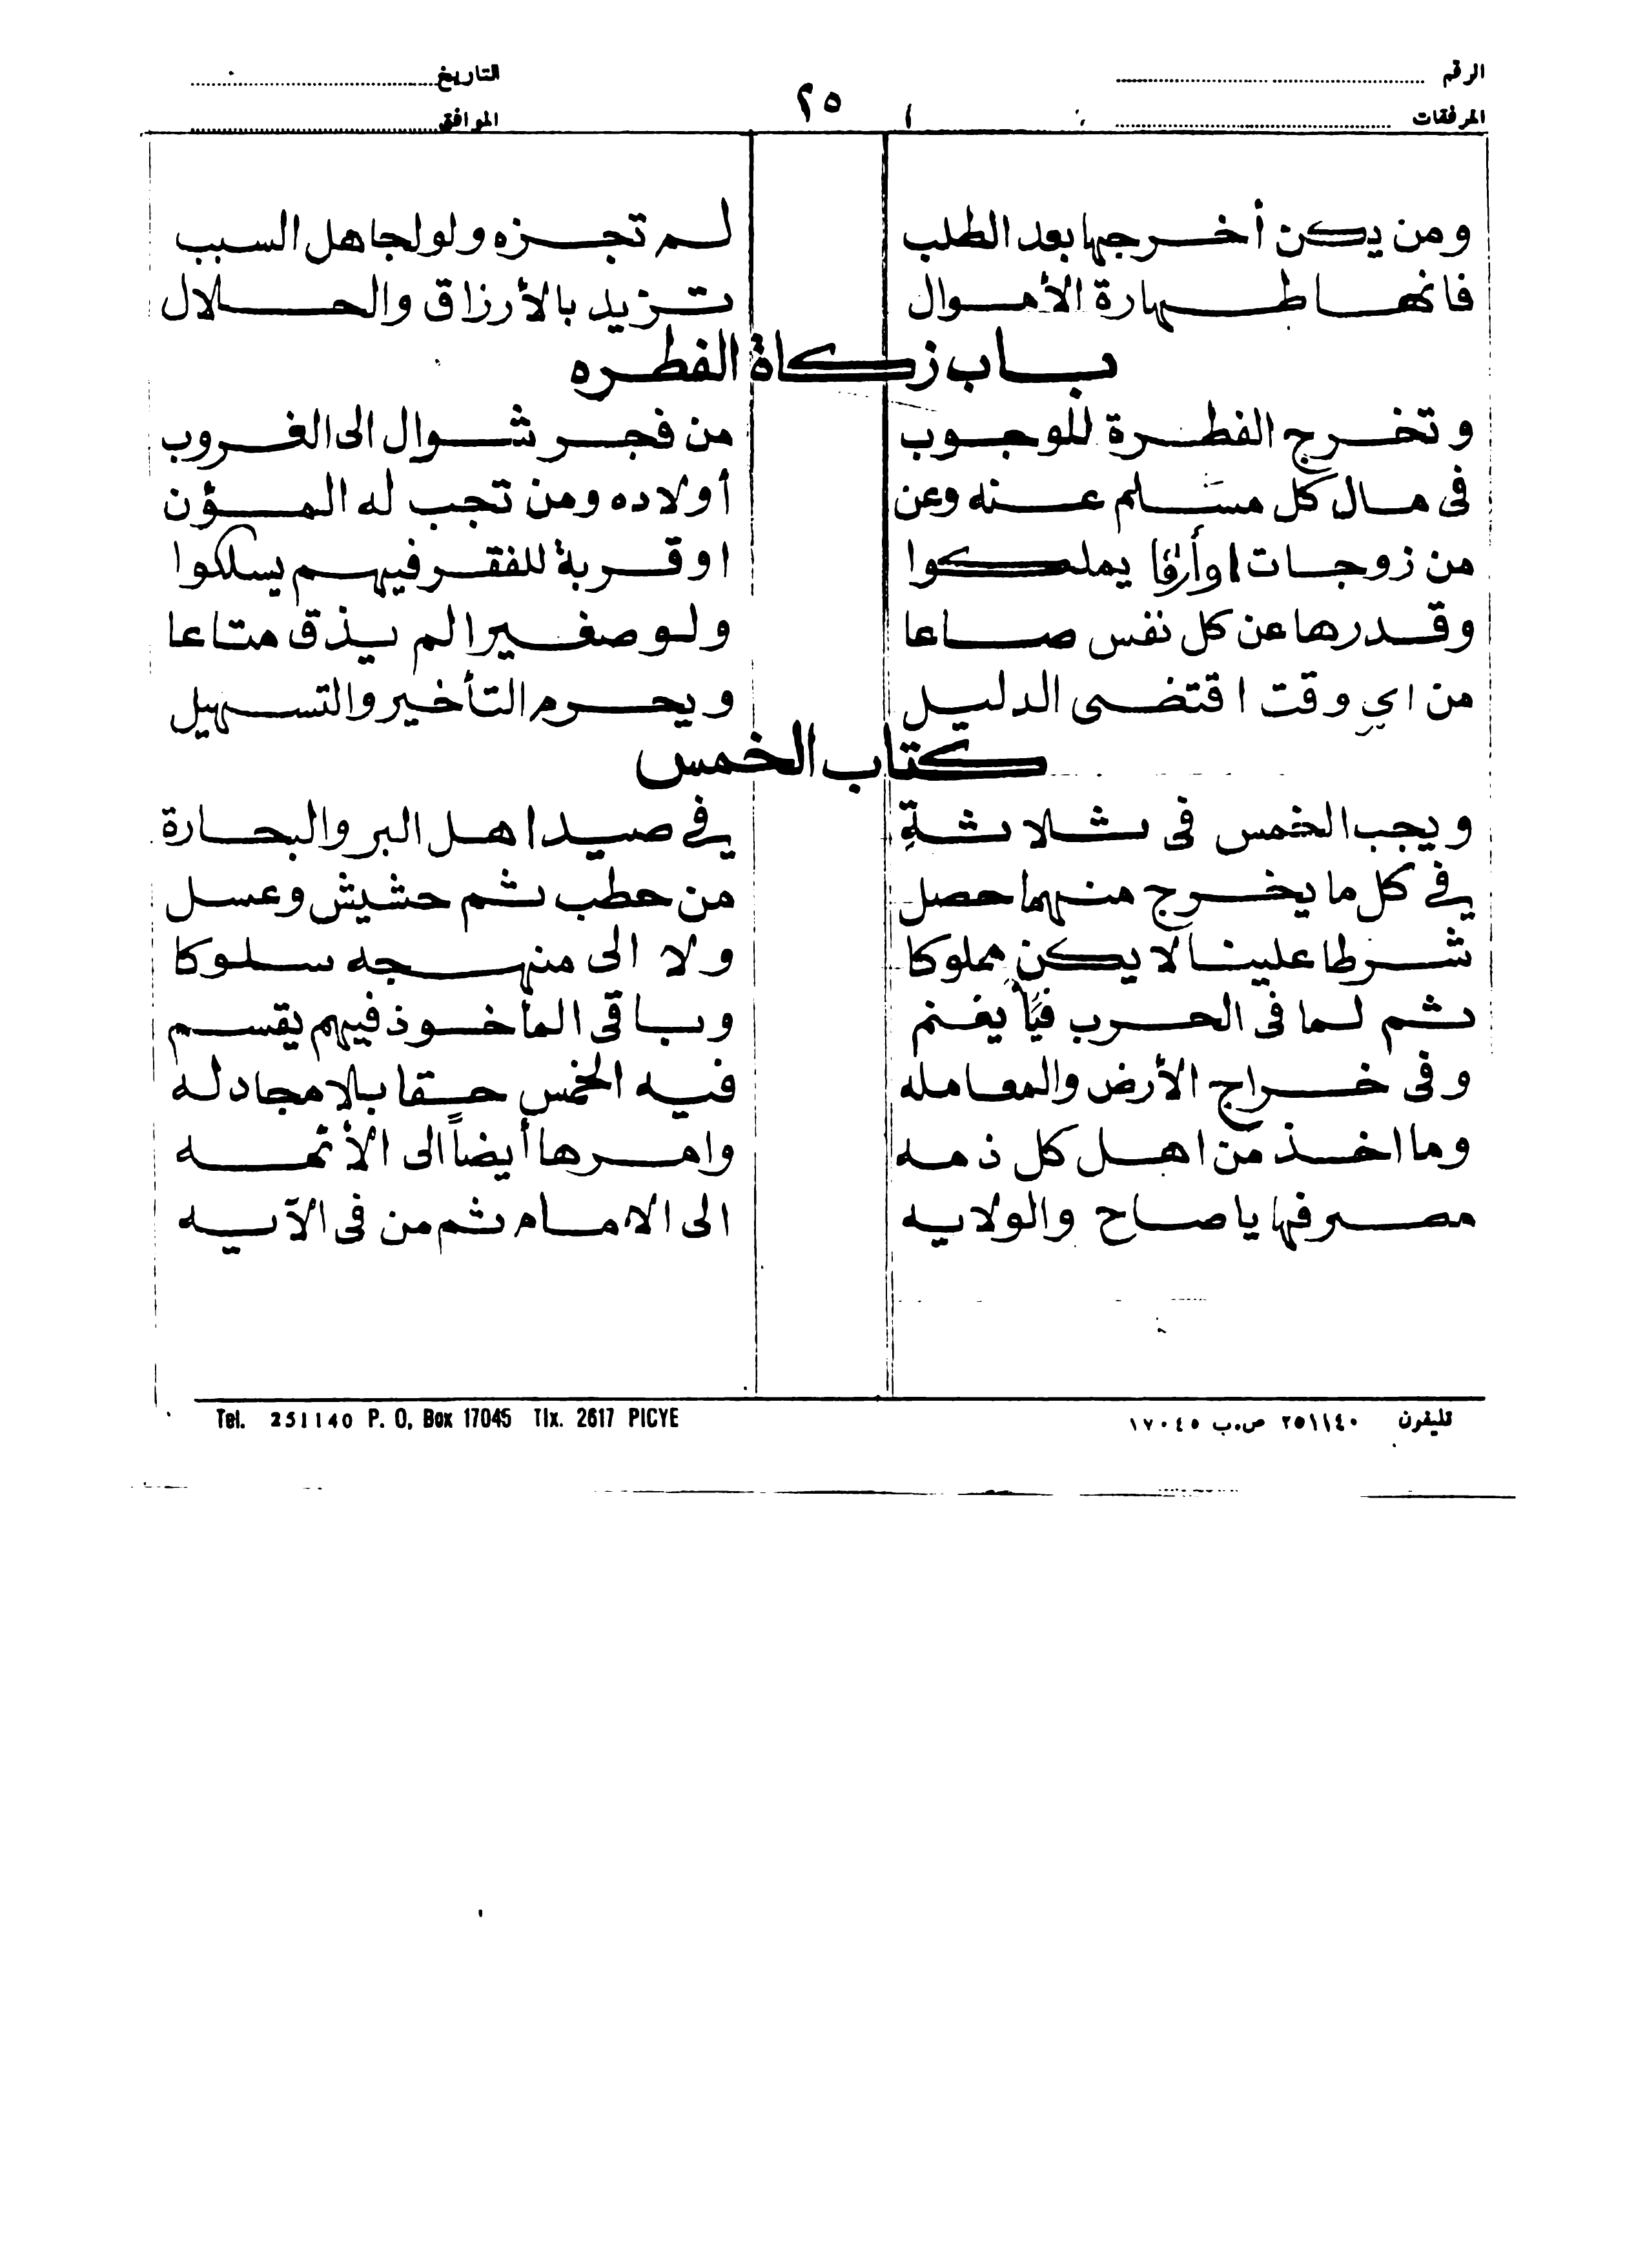 الرقم التاريخ
٢٥
المرفقات الموافق
ومن يكن أخرجها بعد الطلب لم تجزه ولو لجاهل السبب
فانها طهارة الأموال تزيد بالأرزاق والحلال
باب زكاة الفطره
وتخرج الفطرة للوجوب من فجر شوال الى الغروب
فى مال كل مسلم عنه وعن أولاده ومن تجب له المؤن
من زوجات اوأرقا يملكوا او قربة للفقر فيهم يسلكوا
وقدرها عن كل نفس صاعا ولو صغيرا لم يذق متاعا
من اي وقت اقتضى الدليل ويحرم التأخير والتسهيل
كتاب الخمس
ويجب الخمس فى ثلاثةِ في صيد اهل البر والبحارة
في كل ما يخرج منهما حصل من حطب ثم حشيش وعسل
شرطا علينا لا يكن مملوكا ولا الى منهجه سلوكا
ثم لما فى الحرب فيأ يغنم وباقى المأخوذ فيهم يقسم
وفى خراج الأرض والمعامله فيه الخمس حقا بلا مجادله
وما اخذ من اهل كل ذمه وامرها أيضاً الى الأئمه
مصرفها يا صاح والولايه الى الامام ثم من فى الآيه
تليفون ٢٥١١٤٠ ص.ب ١٧٠٤٥ Tel. 251140 P. O, Box 17045 Tlx. 2617 PICYE